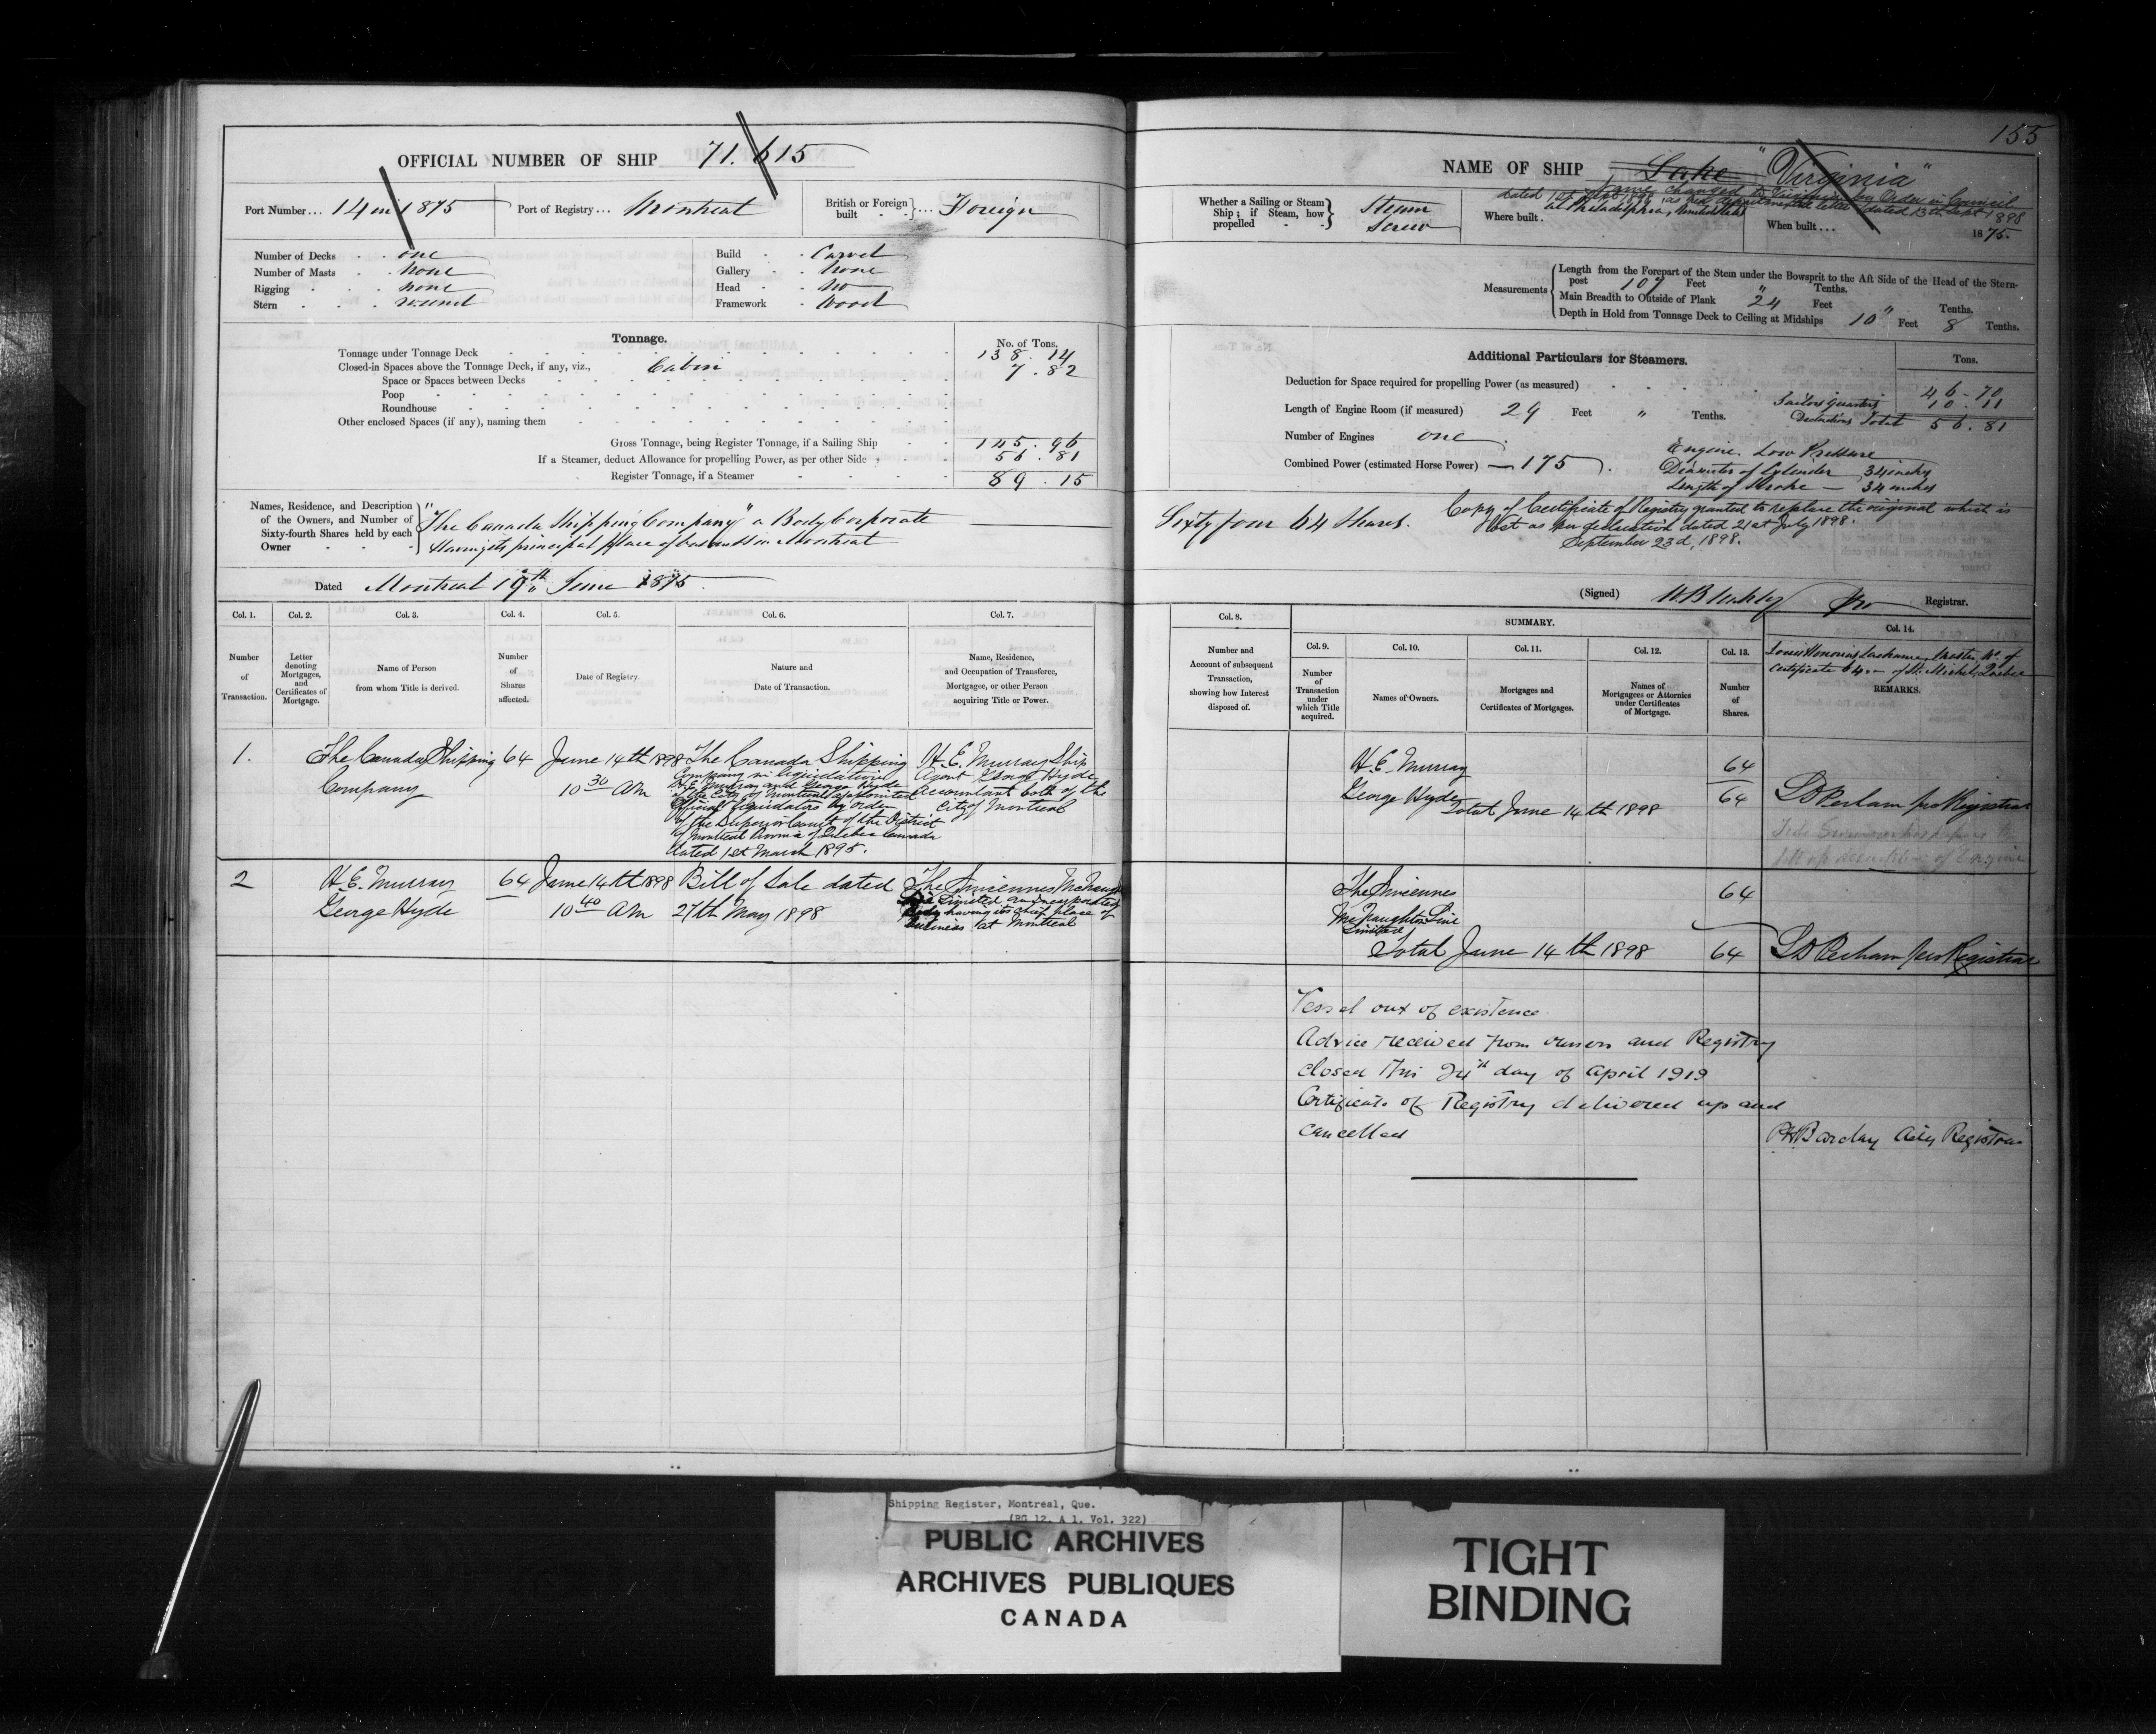 155
OFFICIAL NUMBER OF SHIP 71.615
Port Number... 14 in 1875
Port of Registry... Montreal
British or Foreign built ... Foreign
Number of Decks one
Number of Masts none
Rigging none
Stern round
Build Carvel
Gallery None
Head No
Framework Wood
Tonnage.
No. of Tons.
Tonnage under Tonnage Deck 138.14
Closed-in Spaces above the Tonnage Deck, if any, viz., Cabin 7.82
Space or Spaces between Decks
Poop
Roundhouse
Other enclosed Spaces (if any), naming them
Gross Tonnage, being Register Tonnage, if a Sailing Ship 145.96
If a Steamer, deduct Allowance for propelling Power, as per other Side 56.81
Register Tonnage, if a Steamer 89.15
Names, Residence, and Description
of the Owners, and Number of
Sixty-fourth Shares held by each
Owner
"The Canada Shipping Company" a Body Corporate
Having its principal place of business in Montreal
Dated Montreal 19th June 1875
Col. 1.
Number
of
Transaction.
Col. 2.
Letter
denoting
Mortgages,
and
Certificates of
Mortgage.
Col. 3.
Name of Person
from whom Title is derived.
Col. 4.
Number
of
Shares
affected.
Col. 5.
Date of Registry.
Col. 6.
Nature and
Date of Transaction.
Col. 7.
Name, Residence,
and Occupation of Transferee,
Mortgagee, or other Person
acquiring Title or Power.
1.
The Canada Shipping
Company
64
June 14th 1898
10 30 AM
The Canada Shipping
Company in liquidation
H.E. Murray and George Hyde
of the City of Montreal appointed
Official liquidators by order
of the Superior Court of the District
of Montreal Province of Quebec Canada
dated 1st March 1895.
H.E. Murray Ship
Agent George Hyde
Accountant both of the
City of Montreal
2
H.E. Murray
George Hyde
64
June 14th 1898
10 40 AM
Bill of Sale dated
27th May 1898
The Sincennes McNaughton
Line Limited an incorporated
Body having its chief place of
business at Montreal
NAME OF SHIP Lake "Virginia"
Name changed to Virginia by Order in Council
dated 1st Sept 1898, as per departmental letter dated 13th Sept 1898
Whether a Sailing or Steam
Ship; if Steam, how
propelled
Steam
Screw
Where built. at Philadelphia, United States
When built... 1875.
Measurements
Length from the Forepart of the Stem under the Bowsprit to the Aft Side of the Head of the Stern-
post 107 Feet " Tenths.
Main Breadth to Outside of Plank 24 Feet " Tenths.
Depth in Hold from Tonnage Deck to Ceiling at Midships 10 Feet 8 Tenths.
Additional Particulars for Steamers.
Tons.
Deduction for Space required for propelling Power (as measured) 46.70
Sailors Quarters 10.11
Length of Engine Room (if measured) 29 Feet " Tenths.
Deductions Total 56.81
Number of Engines one
Combined Power (estimated Horse Power) 175
Engine. Low Pressure
Diameter of Cylinder 34 inches
Length of Stroke 34 inches
Sixty four 64 Shares.
Copy of Certificate of Registry granted to replace the original which is
lost as per declaration dated 21st July 1898.
September 23d, 1898.
(Signed) Registrar.
Col. 8.
Number and
Account of subsequent
Transaction,
showing how Interest
disposed of.
SUMMARY.
Col. 9.
Number
of
Transaction
under
which Title
acquired.
Col. 10.
Names of Owners.
Col. 11.
Mortgages and
Certificates of Mortgages.
Col. 12.
Names of
Mortgagees or Attornies
under Certificates
of Mortgage.
Col. 13.
Number
of
Shares.
Col. 14.
Master, No. of
Certificate 64. of St. Michel, Quebec
REMARKS.
H.E. Murray
George Hyde
Total June 14th 1898
64
64
LB Perham pro Registrar
The Sincennes
McNaughton Line
Limited
64
Total June 14th 1898
64
LB Perham pro Registrar
Vessel out of existence
Advice received from owners and Registry
closed this 24th day of April 1919
Certificate of Registry delivered up and
cancelled
PH Barclay Actg Registrar
Shipping Register, Montréal, Que.
(RG 12, A 1, Vol. 322)
PUBLIC ARCHIVES
ARCHIVES PUBLIQUES
CANADA
TIGHT
BINDING